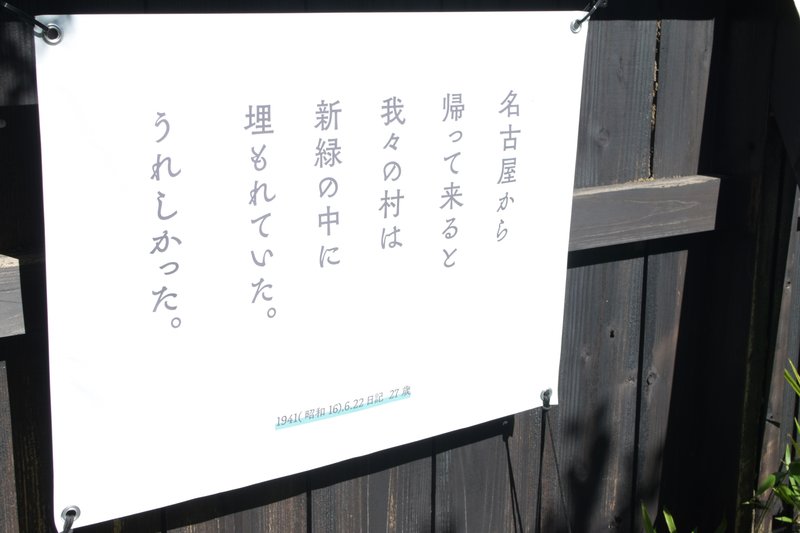 名古屋から
帰って来ると
我々の村は
新緑の中に
埋もれていた。
うれしかった。
1941(昭和16).6.22日記 27歳